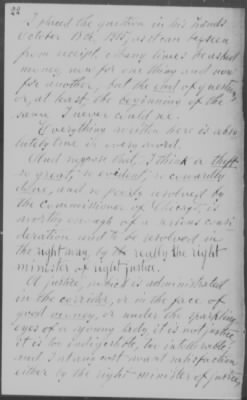 22
I placed the question in his hands
October 18th, 1915, as it can be seen
from receipt. Many times he asked
money, now for one thing and now
for another, but the end of question
or, at least, the beginning of the
same I never could see.
Everything written here is abso
lutely true in every word.
And suppose that, I think a theft
so great, so evident, so cowardly
done, and so poorly resolved by
the Commissioner of Chicago, is
worthy enough of a serious consi
deration and to be resolved in
the right way, by really the right
minister of right justice.
A justice, which is administrated
in the corridor, or in the face of
good money, or under the sparkling
eyes of a young lady, it is not justice,
it is too indigestible, too intolerable
and I at any cost want satisfaction
either by the right minister of justice,